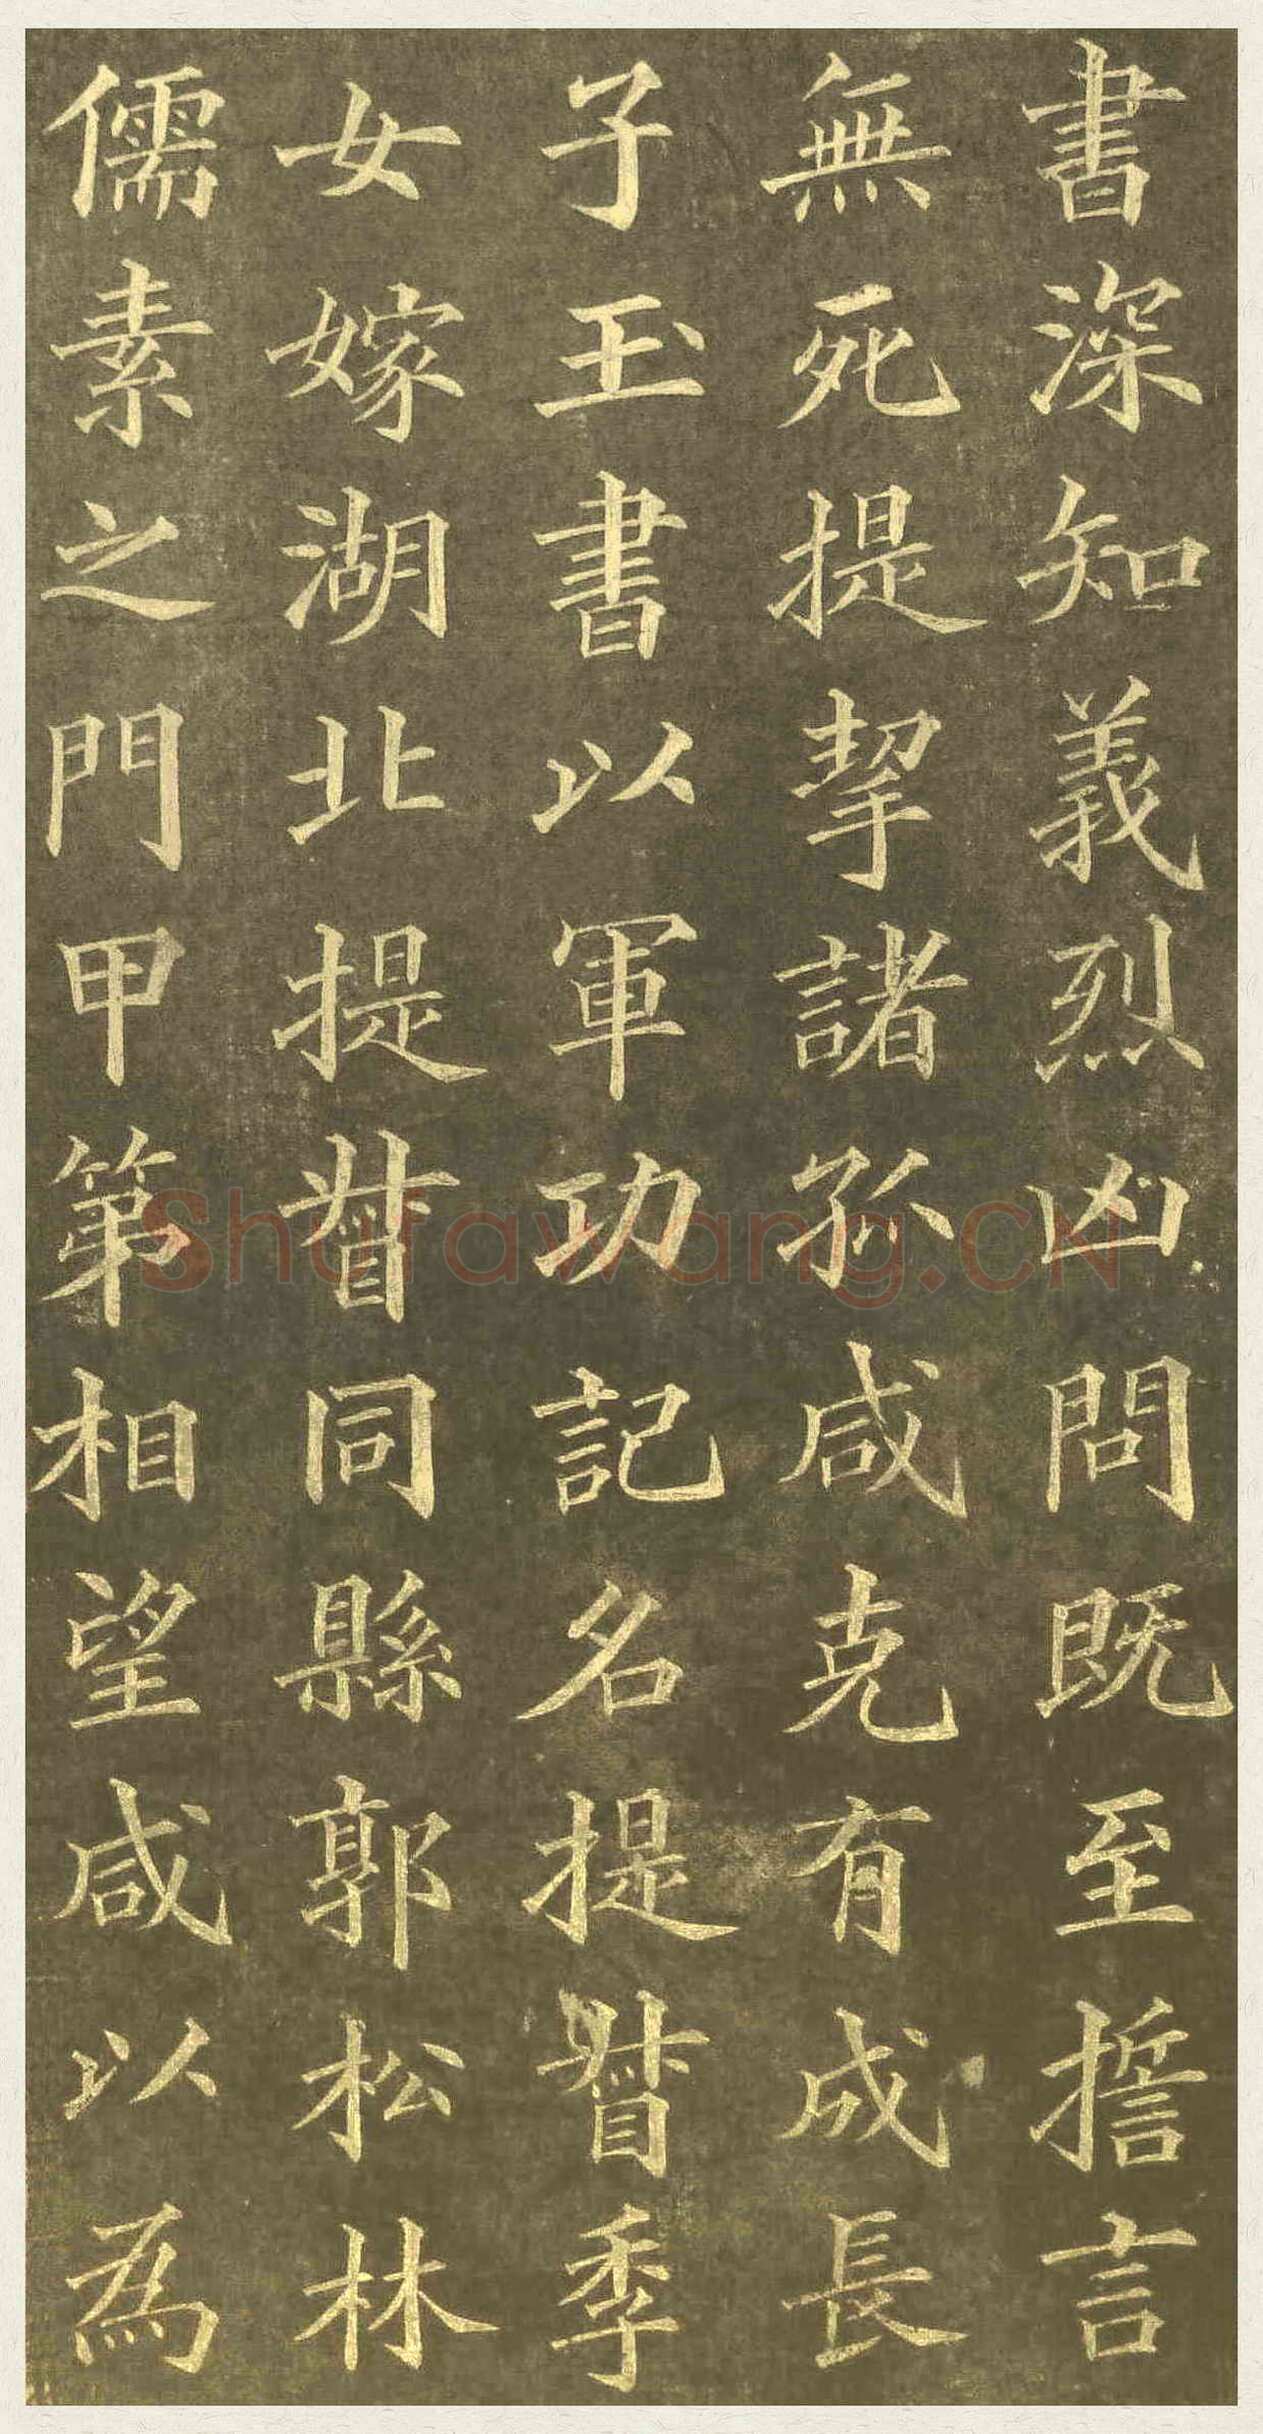 書深知義烈凶問既至捨言
無死提挈諸孤咸克有成長
子玉書以軍功記名提督季
女嫁湖北提督同縣郭松林
儒素之門甲第相望咸以為
Shufawang.CN